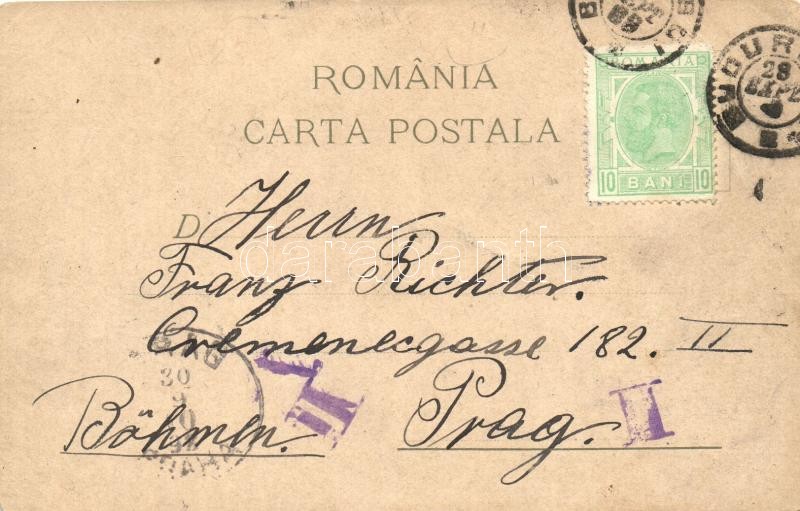 ROMÂNIA
CARTA POSTALA
ROMANIA
10 BANI 10
BUCUR
28
SEPT
D
Herrn
Franz Richter.
Cremenecgasse 182. II
Böhmen. Prag. II
II
PRAG
30
9
PRAHA
darabanth